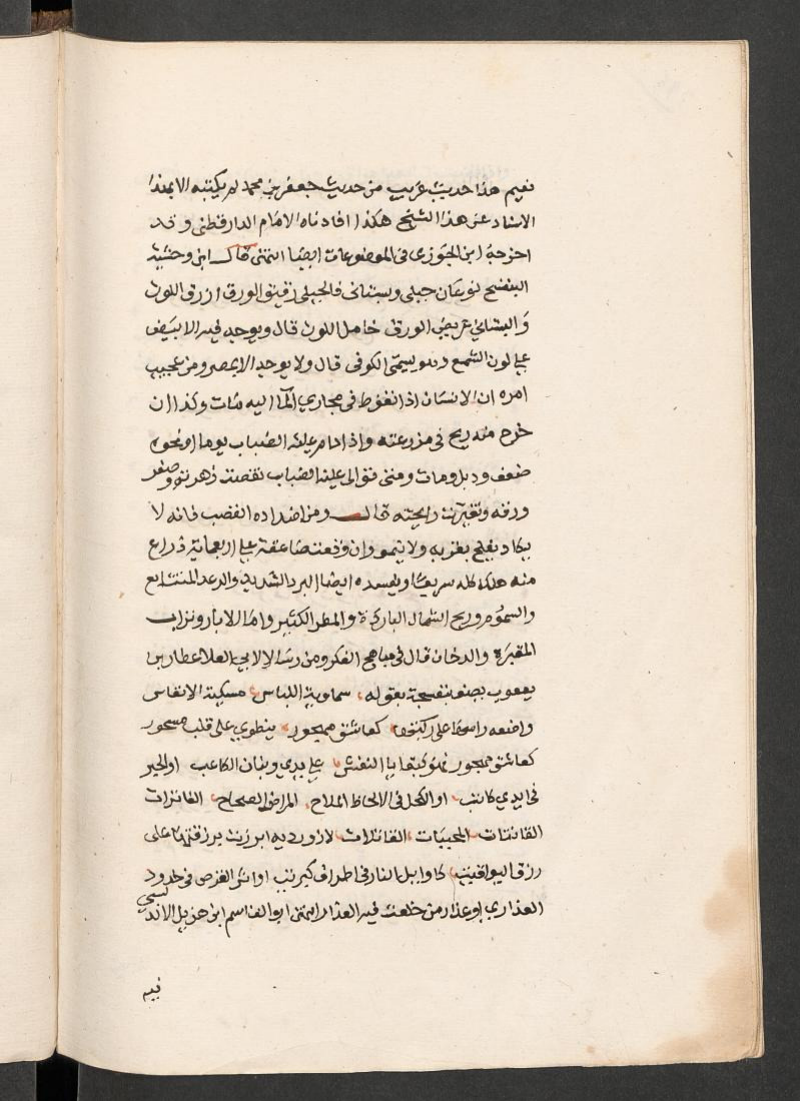 نعيم هذا حديث غريب من حديث جعفر بن محمد لم يكتبه الا بهذا
الاسناد عن هذا الشيخ هكذا افادناه الامام الدارقطني وقد
اخرجه ابن الجوزي في الموضوعات ايضا انتهى قال ابن وحشية
البنفسج نوعان جبلي وبستاني فالجبلي رقيق الورق ازرق اللون
والبستاني عريض الورق خامل اللون قال ويوجد فيه الابيض
على لون الشمع ويسمى الكوفي قال ولا يوجد الا بمصر ومن عجيب
امره ان الانسان اذا تغوط في مجاري الماء اليه مات وكذا ان
خرج منه ريح في مزرعته واذا دام عليه الضباب يوما او نحوه
ضعف وذبل ومات ومتى توالى عليه الضباب نقصت زهرته وصغر
ورقه وتغيرت رايحته قال ومن اضداده القصب فانه لا
يكاد يفلح بقربه ولا ينمو وان وقعت صاعقة على اربعماية ذراع
منه هلك كله سريعا ويفسده ايضا البرد الشديد والرعد المتتابع
والسموم وريح الشمال الباردة والمطر الكثير واما الابار وتراب
المقبرة والدخان قال في مباهج الفكر ومن رسالة لابي العلا عطار بن
يعقوب يصف بنفسجة بقوله سماوية اللباس مسكية الانفاس
واضعه راسها على ركبتها كعاشق مهجور ينطوي على قلب مسحور
كعاشق مهجور كبقايا النقش على يدي وبنان الكاعب او الحبر
في ايدي كاتب او الكحل في الالحاظ الملاح المراض الصحاح الفاترات
القاتلات المحييات الفاترات لازوردية ابرزت بزرقتها على
زرق اليواقيت كاوايل النار في اطراف كبريت او اثر القرص في خدود
العذارى او عذار من خلعت فيه العذار انتهى ابو القاسم ابن هذيل الاندلسي
فيه